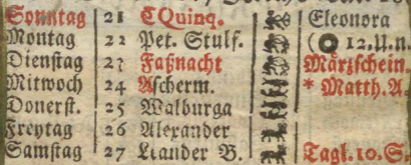 Sonntag 21 C Quinq. Eleonora
Montag 22 Pet. Stulf. ( 12.U.n.
Dienstag 23 Faßnacht Märzschein.
Mitwoch 24 Ascherm. * Matth. A.
Donerst. 25 Walburga
Freytag 26 Alexander
Samstag 27 Leander B. Tagl. 10. S